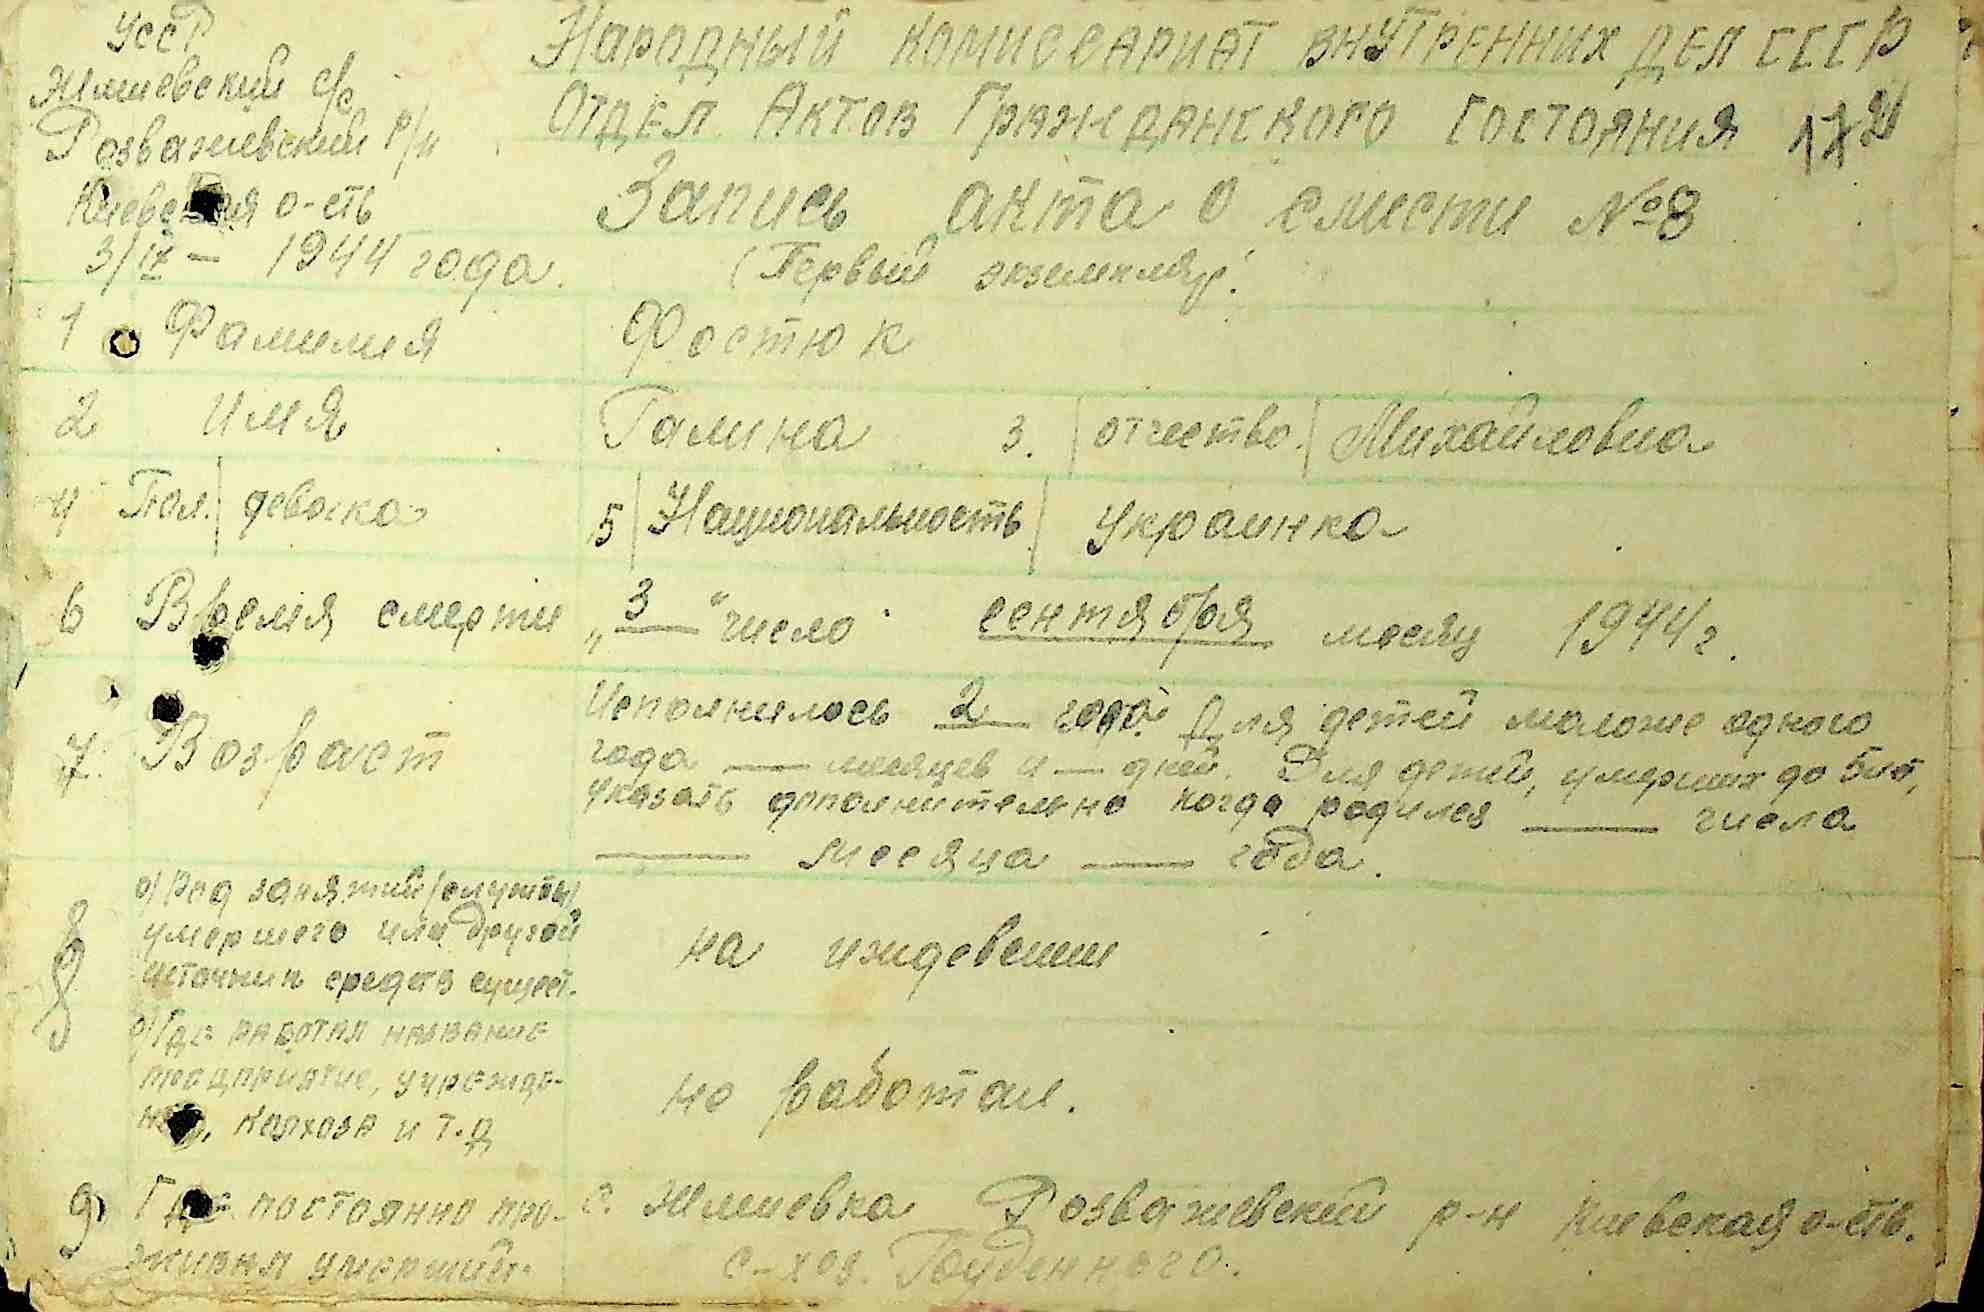 УССР
Жмиевский с/с
Розважевский р/н
Киевская о-сть
3/IX – 1944 года.
Народный комиссариат внутренних дел СССР
Отдел Актов Гражданского состояния
Запись акта о смести №8
(Первый экземпляр.
1 Фамилия Фостюк
2 Имя Галина 3. отчество. Михайловна
4 Пол. девочка 5 Национальность Украинка
6 Время смерти „3“ число сентября месяц 1944 г.
7. Возраст
Исполнилось 2 года. Для детей моложе одного
года — месяцев и — дней. Для детей, умерших до 5 лет,
указать дополнительно когда родился — числа
— месяца — года.
8
а) Род занятий (службы)
умершего или другой
источник средств сущест.
на иждевении
б) Где работал название
предприятие, учрежде-
ния, калхоза и т.д
не работал.
9) Где постоянно про-
живал умерший.
с. Жмиевка Розважевский р-н Киевская о-сть.
с-хоз. Буденного.